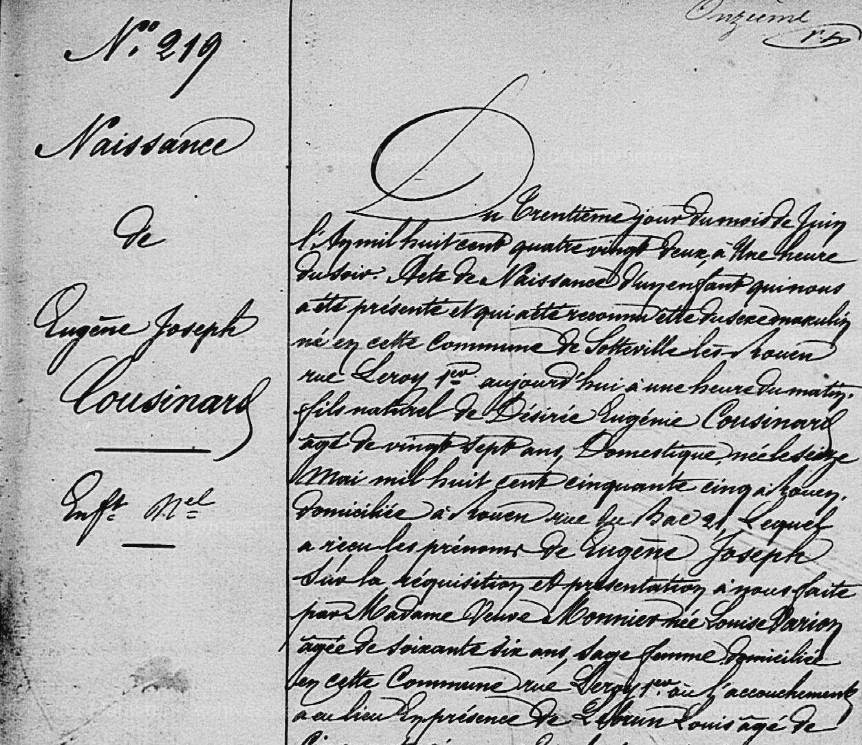 Onzième
N.° 219
Naissance
de
Eugène Joseph
Cousinard
Enft. Nel
Du trentième jour du mois de Juin
l'An mil huit cent quatre vingt deux, à Une heure
du soir. Acte de Naissance d'un enfant qui nous
a été présenté et qui a été reconnu être du sexe masculin
né en cette Commune de Sotteville-lès-Rouen
rue Leroy 1er aujourd'hui à une heure du matin.
fils naturel de Désirée Eugénie Cousinard
âgé de vingt sept ans, Domestique, née le seize
Mai mil huit cent cinquante cinq à Rouen.
domiciliée à Rouen rue du Bac 21, Lequel
a reçu les prénoms de Eugène Joseph
Sur la réquisition et présentation à nous faite
par Madame Veuve Monnier née Louise Varion
âgée de soixante six ans, sage femme domiciliée
en cette Commune rue Leroy 1er où l'accouchement
a eu lieu En présence de Lebrun Louis âgé de